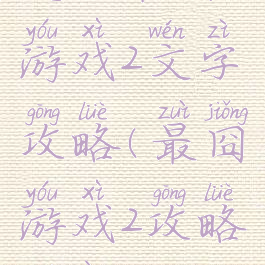 yóu xì wén zì
游戏2文字
gōng lüè zuì jiǒng
攻略(最囧
yóu xì gōng lüè
游戏2攻略